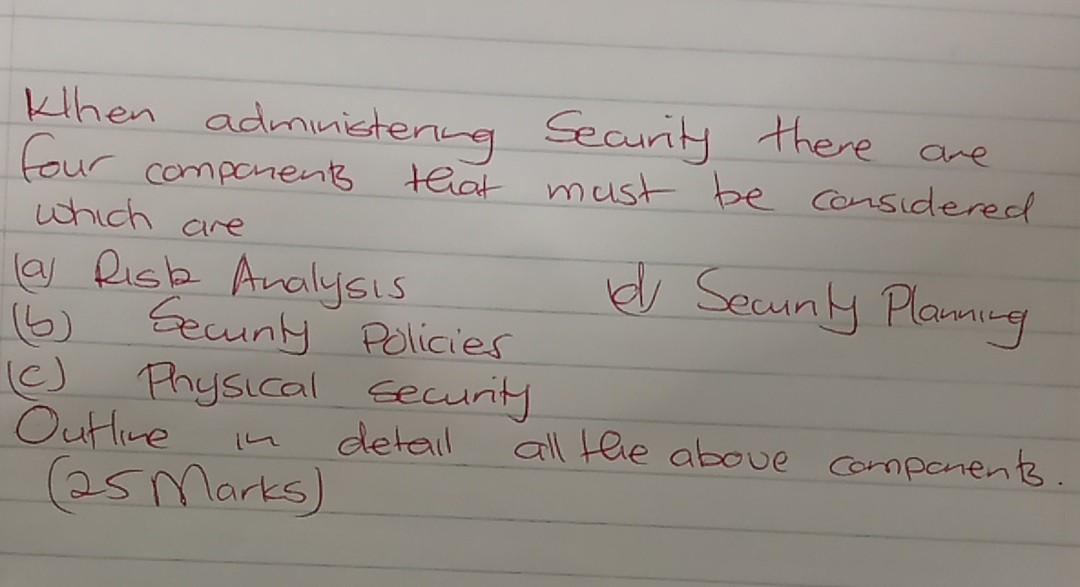 When administering Security there are
four components that must be considered
which are
(a) Risk Analysis
d) Security Planning
(b) Security Policies
(c) Physical security
Outline in detail all the above components.
(25 Marks)